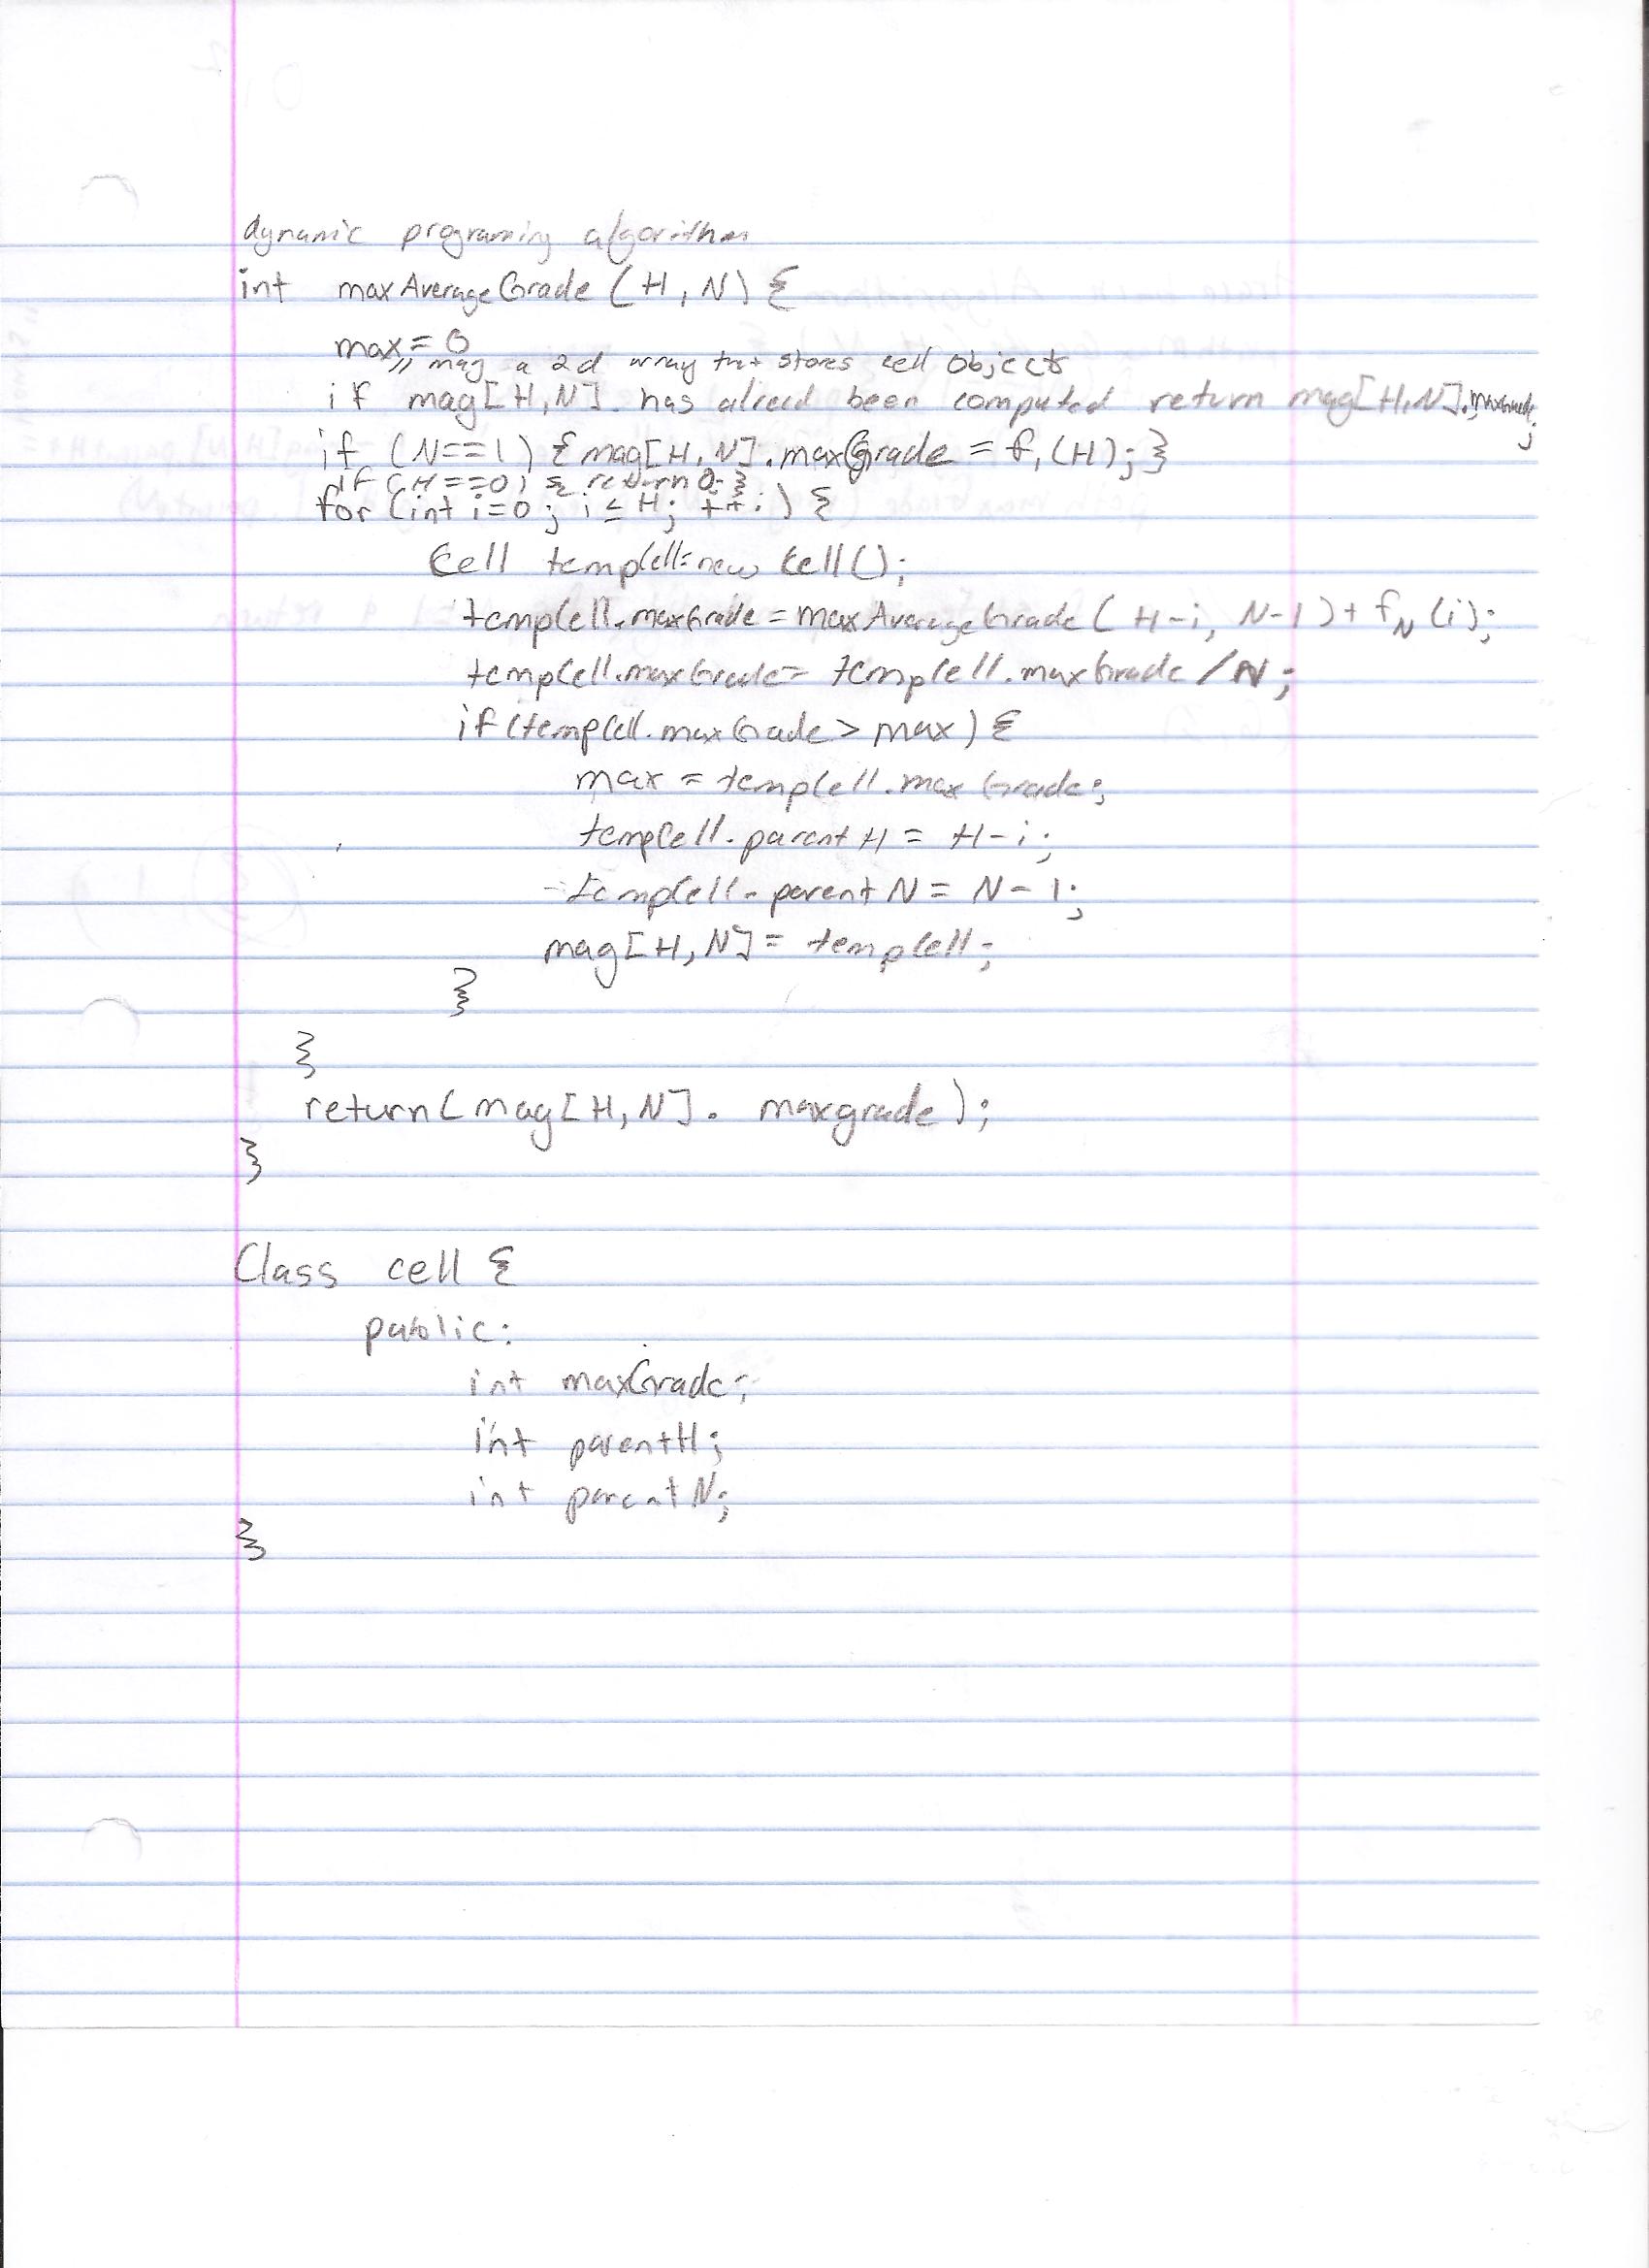 dynamic programing algorithm
int maxAverageGrade (H, N) {
max = 0
// mag a 2d array that stores cell objects
if mag[H,N] has alread been computed return mag[H,N].maxGrade;
if (N==1) {mag[H,N].maxGrade = f₁(H);}
if (H==0) { return 0; }
for (int i=0; i ≤ H; ++i) {
Cell tempCell = new Cell();
tempCell.maxGrade = maxAverageGrade (H-i, N-1) + f_N(i);
tempCell.maxGrade = tempCell.maxGrade / N;
if (tempCell.maxGrade > max) {
max = tempCell.maxGrade;
tempCell.parentH = H-i;
tempCell.parentN = N-1;
mag[H,N] = tempCell;
}
}
return(mag[H,N]. maxgrade);
}
Class cell {
public:
int maxGrade;
int parentH;
int parentN;
}